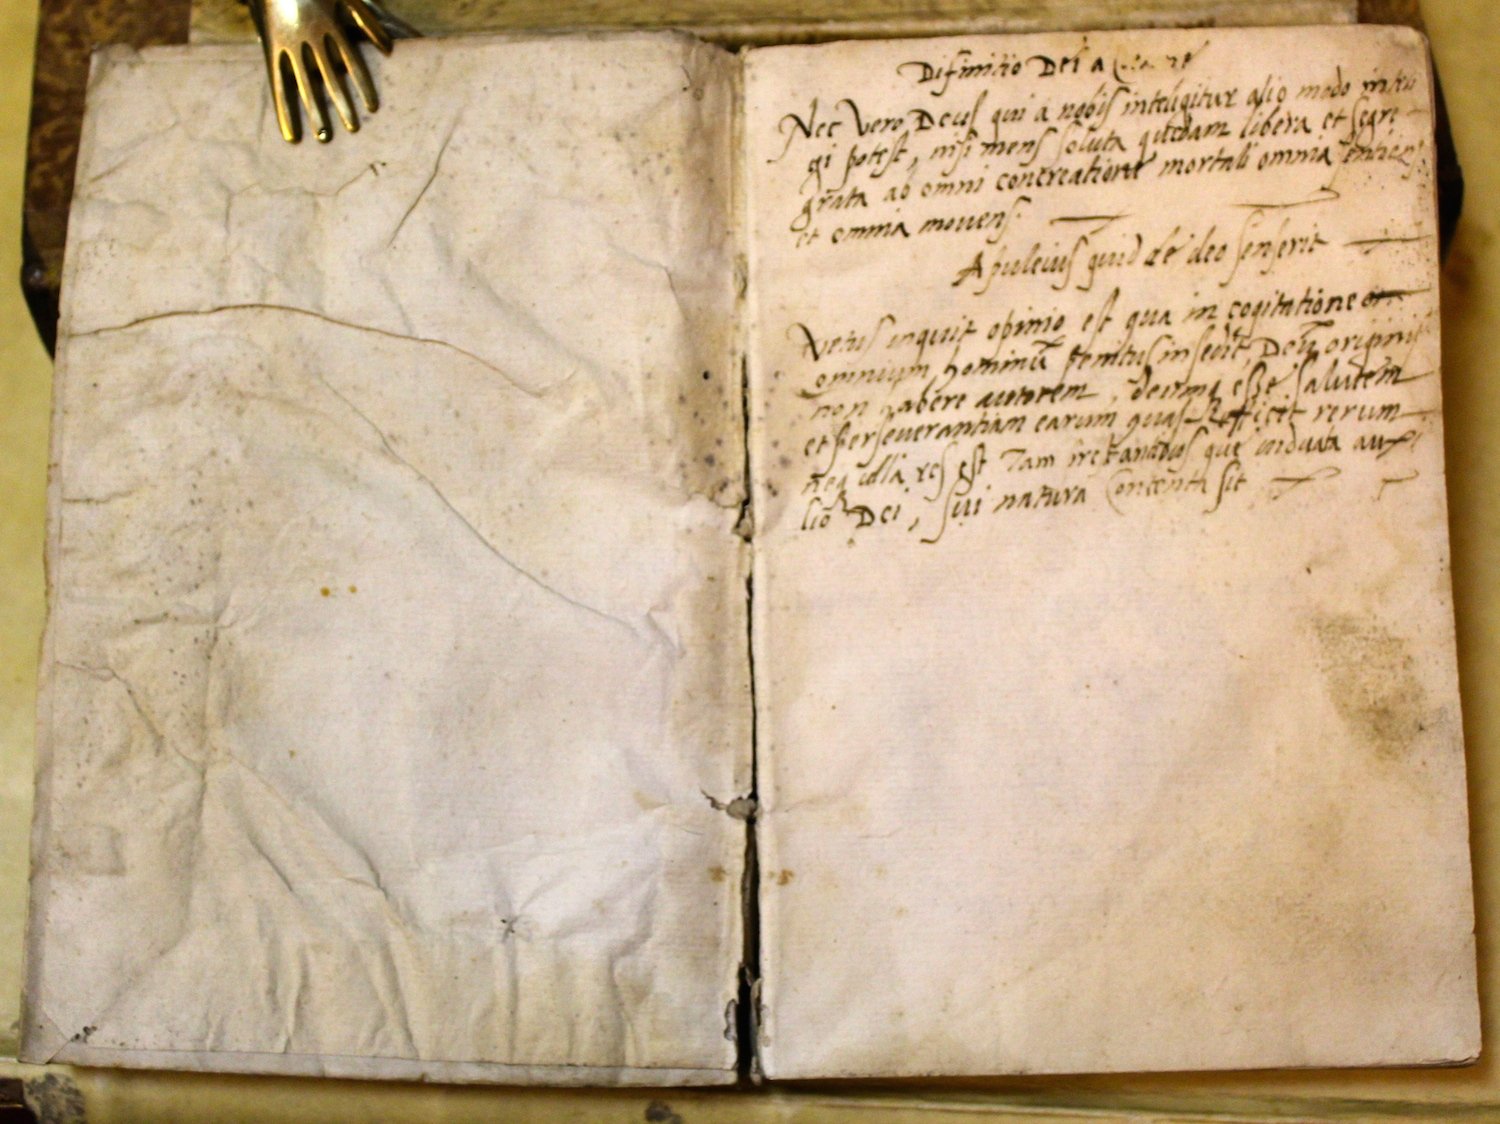 Difinitio Dei a
Nec vero Deus qui a nobis inteligitur alio modo inteli
gi potest, nisi mens soluta quedam libera et segre
grata ab omni concreatione mortali omnia sentiens
et omnia movens.
Apuleius quid de deo senserit
Vetus inquit opinio est qua in cogitatione
omnium hominũ penitus insedit, Deũ originis
non habere autorem, deumq esse salutem
et perseverantiam earum quas efficit rerum
neq ulla res est Tam que viduata auxi
lio Dei, sui natura contenta sit